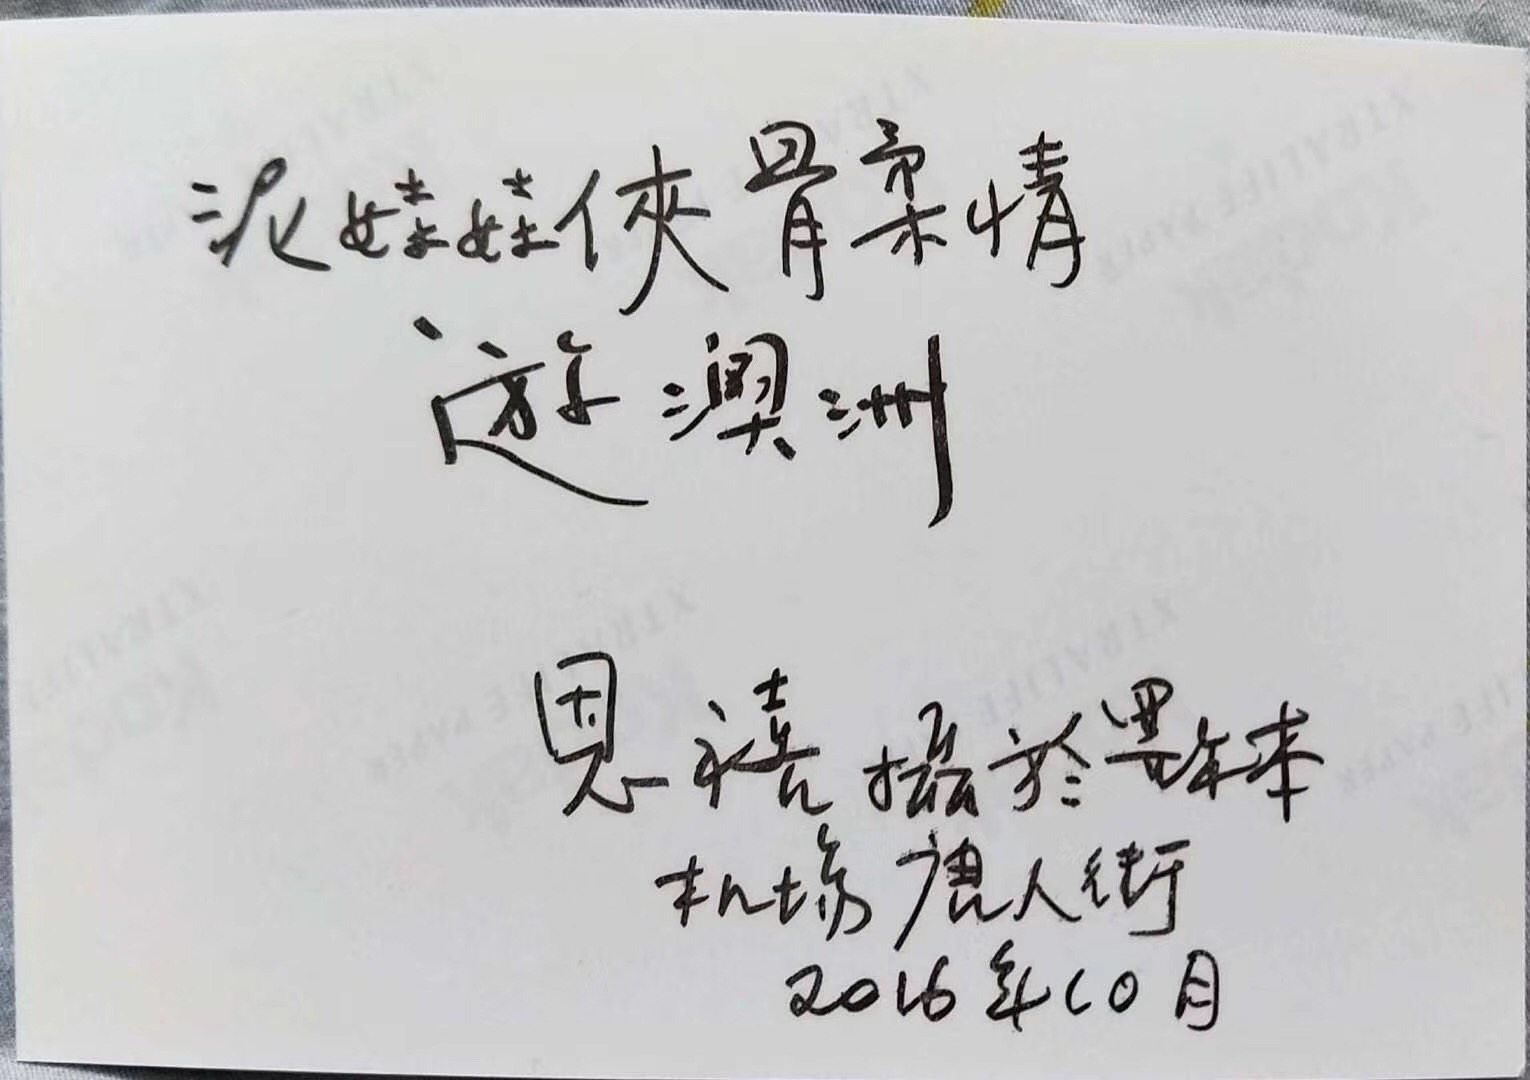 泥娃娃俠骨柔情
遊澳洲
恩禧攝於墨尔本
机场唐人街
2016年10月